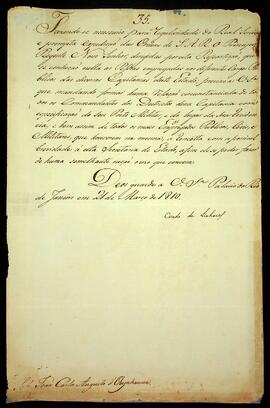 35.
Fazendo-se necessario para regularidade do Real Serviço,
e prompta expedição das Ordens de S. A. R. O Principe
Regente Nosso Senhor, dirigidas por esta Repartição, que
se conheção nella os
das diversas Capitanias deste Estado, previno a V. S.ª
que mandando formar huma Relação circunstanciada de to-
dos os Commandantes de Districto dessa Capitania com
especificação do seu Posto Militar, e do lugar da sua Residen-
cia, e bem assim de todos os mais Empregados Publicos, Civis, e
Militares que houverem na mesma, a remetta com a possivel
brevidade a esta Secretaria de Estado, afim de se poder fazer
de huma semelhante noção o uso que convem.
Deos guarde a V. S.ª Palacio do Rio
de Janeiro em 21 de Março de 1810.
Conde de Linhares
S.r João Carlos Augusto d'Oeynhausen.